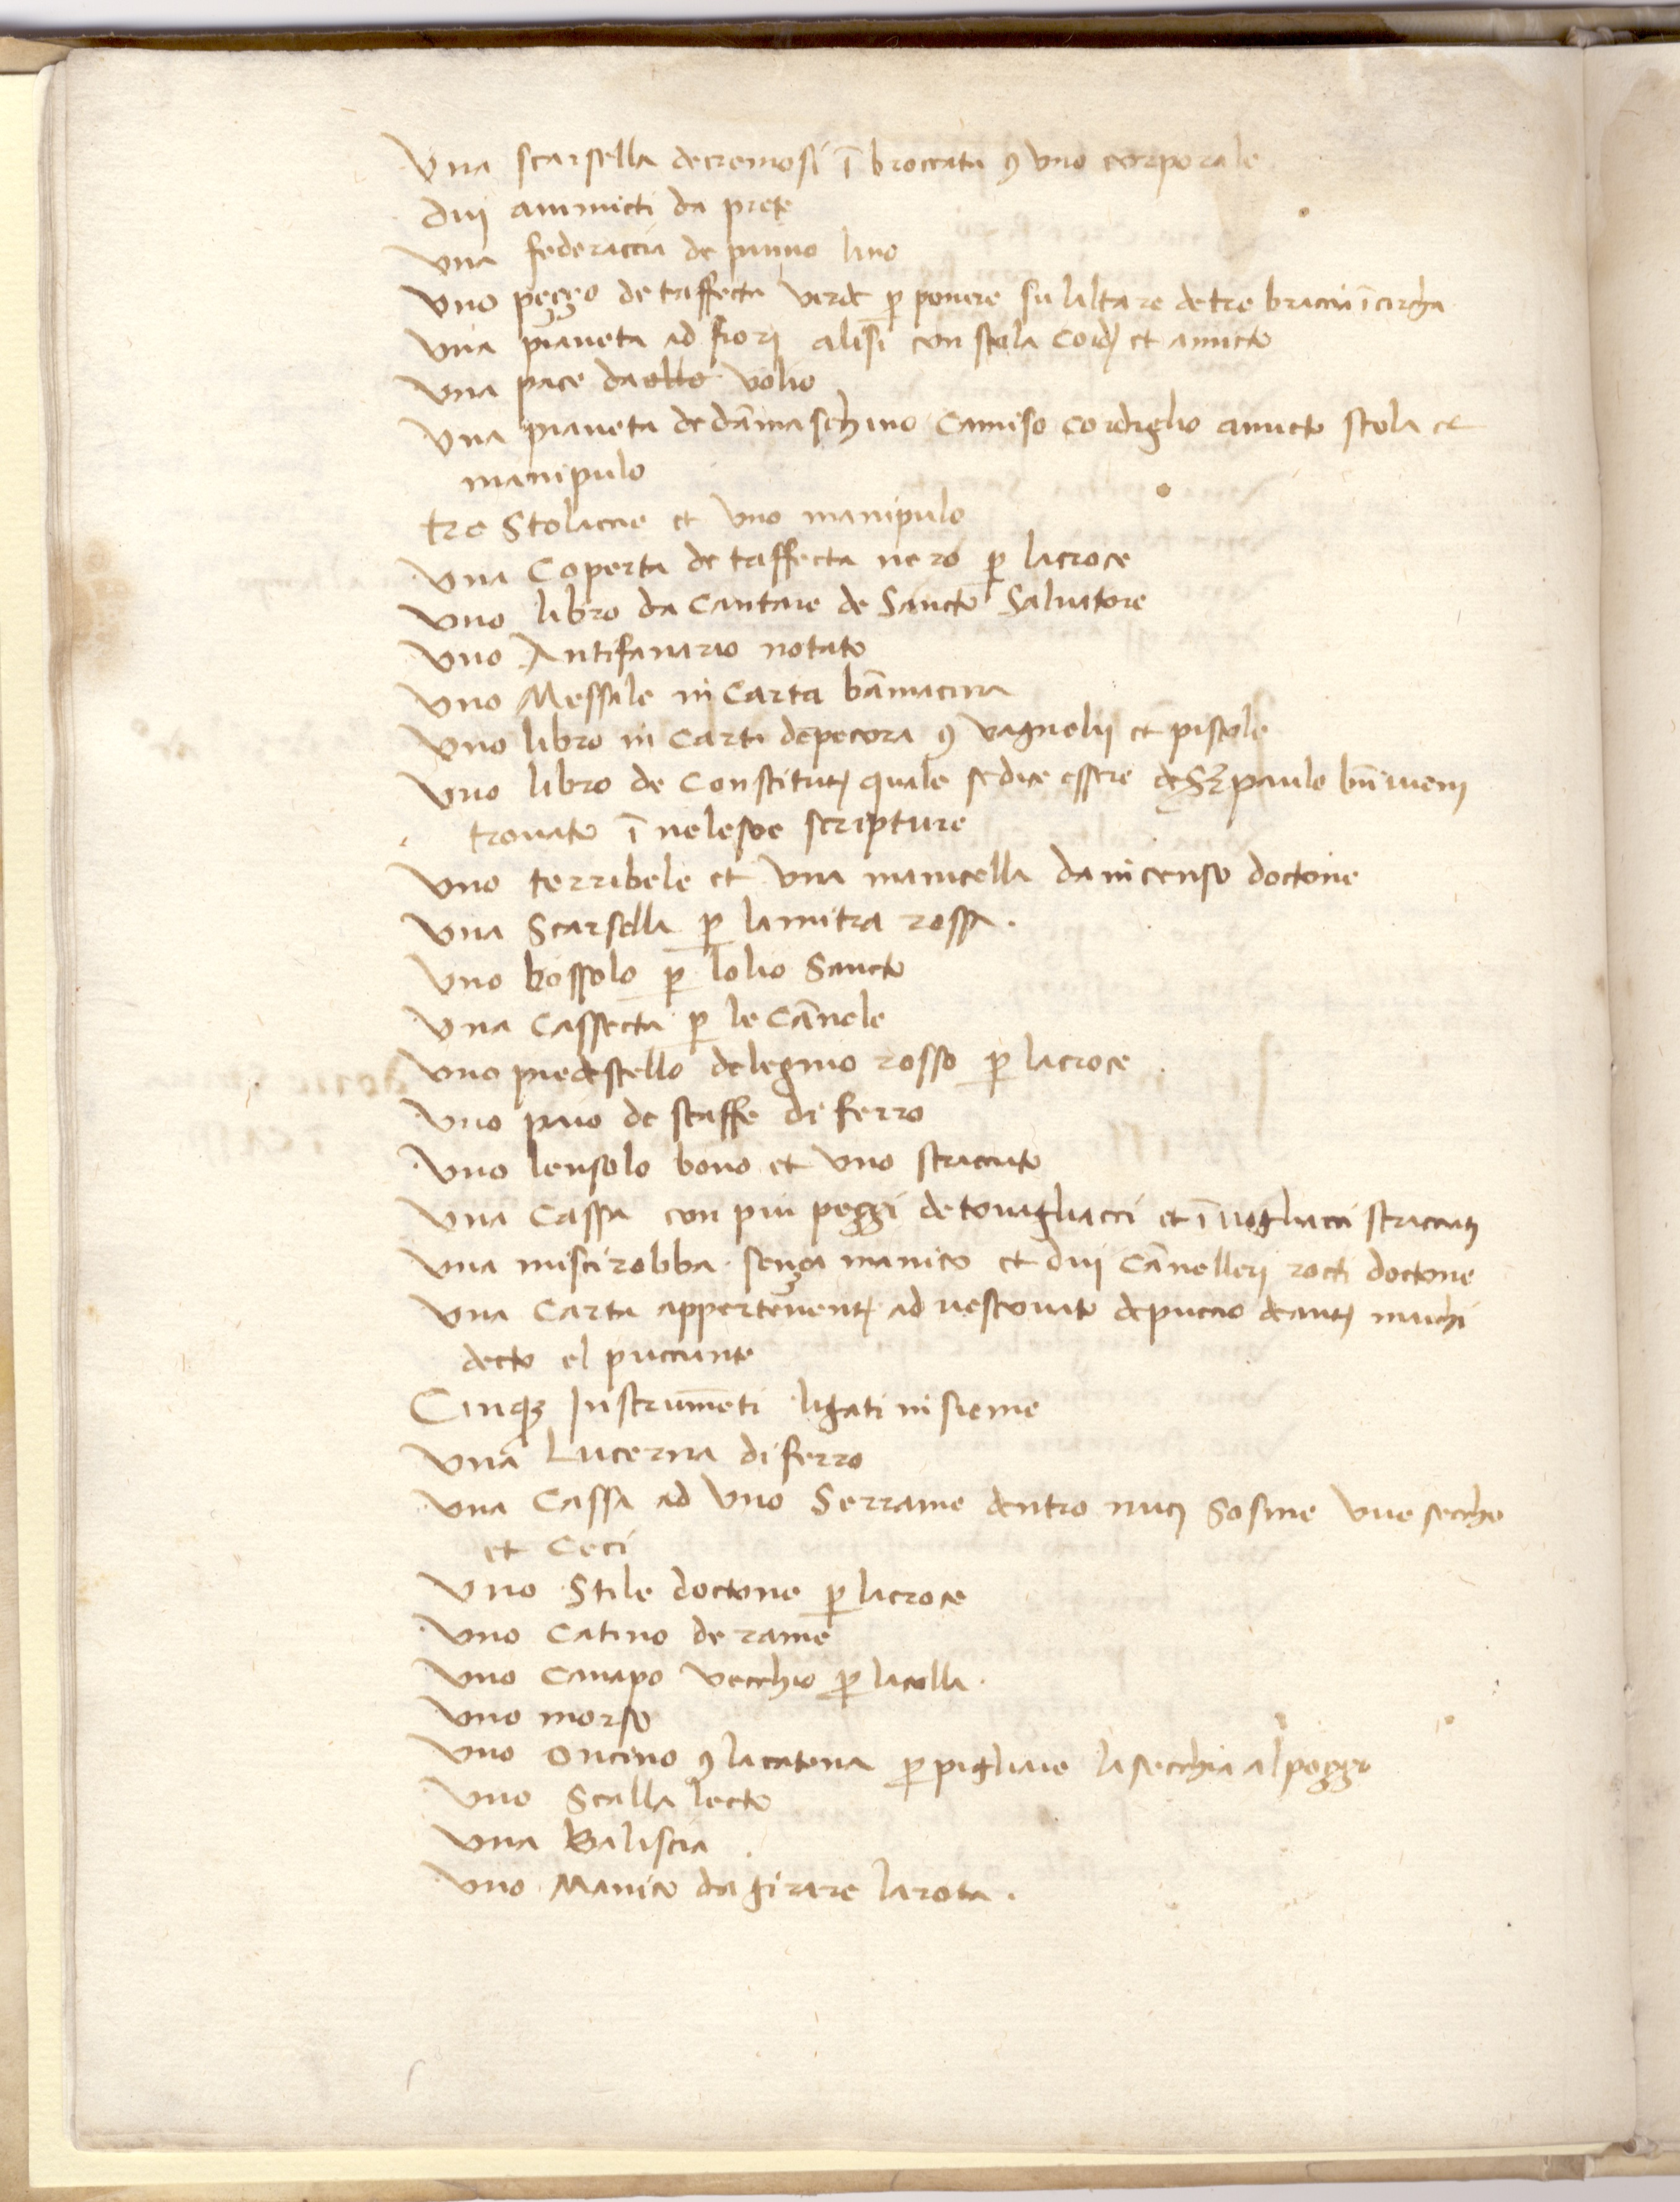 Una scarsella decremosi ī broccata ꝯ uno corporale
dui ammicti da prete
una federaccia de panno lino
uno pezzo de taffecta verde ꝑ ponere su laltare de tre braccia ī cirha
una pianeta ad fiori con stola cord et amicto
una pace
una pianeta de dāmaschino Camiso cordiglio amicto stola et
manipulo
tre Stolaccie et uno manipulo
una Coperta de taffecta nero ꝑ lacroce
uno libro da Cantare de Sancto Salvatore
uno Antifanario notato
uno Messale in Carta bāmacina
uno libro in Carti depecora ꝯ vagnelii et pistole
uno libro de Constitutj quale sedice essere de paulo
trovato ī nelesoe scripture
uno terribele et una navicella da incenso doctone
una Scarsella ꝑ lamitra rossa.
uno bossolo ꝑ lolio Sancto
una Cassecta ꝑ le Cānele
uno piedestello delegnio rosso ꝑ lacroce
uno paio de staffe di ferro
uno lensolo bono et uno stracciato
una Cassa con piu pezzi detovagliacci et ī vogliacci stracciatj
una miscirobba senza manico et dui Cānellerj rocti doctone
una Carta appertenentj ad vescovato depuccio
decto el
Cinqꝫ Instrumēti ligati insieme
una Lucerna di ferro
una Cassa ad uno Serrame dentro nucj Sosine uve secche
et Ceci
uno Stile doctone ꝑ lacroce
uno Catino de rame
uno Canapo vecchio ꝑ lacolla.
uno morso
uno oncino ꝯ lacatena ꝑ pigliare lasecchia alpozzo
uno Scalla lecto
una Baliscia
uno Manico da girare larota.